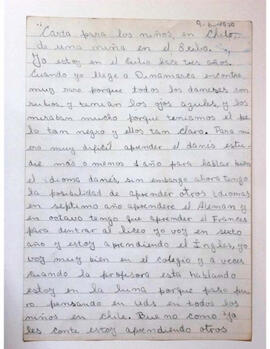 9-6-1980
"Carta para los niños, en Chile,
de una niña en el Exilio.",
Yo estoy en el Exilio hace tres años.
Cuando yo llege a Dinamarca encontre
muy raro porque todos los daneses son
rubios y tenian los ojos azules, y los
miraban mucho porque teniamos el pe
lo tan negro y ellos tan claro. Para mi
era muy difícil aprender el danés estu-
die mas o menos 1 año para hablar bien
el idioma danés, sin embargo ahora tengo
la posibilidad de aprender otros idiomas
en septimo año aprendere el Aleman y
en octavo tengo que aprender el Frances
para dentrar al liceo yo voy en sexto
año y estoy aprendiendo el Ingles, yo
voy muy bien en el colegio y a veces
cuando la profesora esta hablando
estoy en la luna porque paso puro
pensando en uds en todos los
niños en chile. Bueno como ya
les conte estoy aprendiendo otros